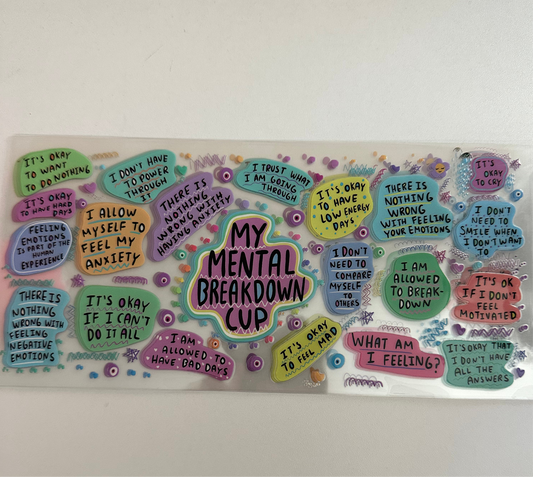 IT'S OKAY
TO WANT
TO DO NOTHING
I DON'T HAVE
TO POWER
THROUGH
IT
THERE IS
NOTHING
WRONG WITH
HAVING ANXIETY
I TRUST WHAT
I AM GOING
THROUGH
IT'S OKAY
TO HAVE
LOW ENERGY
DAYS
THERE IS
NOTHING
WRONG WITH
FEELING
YOUR EMOTIONS
IT'S
OKAY
TO CRY
IT'S OKAY
TO HAVE HARD
DAYS
I ALLOW
MYSELF TO
FEEL MY
ANXIETY
FEELING
EMOTIONS
IS PART OF THE
HUMAN
EXPERIENCE
MY
MENTAL
BREAKDOWN
CUP
I DON'T
NEED TO
COMPARE
MYSELF
TO
OTHERS
I AM
ALLOWED
TO BREAK-
DOWN
I DON'T
NEED TO
SMILE WHEN
I DON'T WANT
TO
THERE IS
NOTHING
WRONG WITH
FEELING
NEGATIVE
EMOTIONS
IT'S OKAY
IF I CAN'T
DO IT ALL
I AM
ALLOWED TO
HAVE BAD DAYS
IT'S OKAY
TO FEEL MAD
WHAT AM
I FEELING?
IT'S OK
IF I DON'T
FEEL
MOTIVATED
IT'S OKAY THAT
I DON'T HAVE
ALL THE
ANSWERS